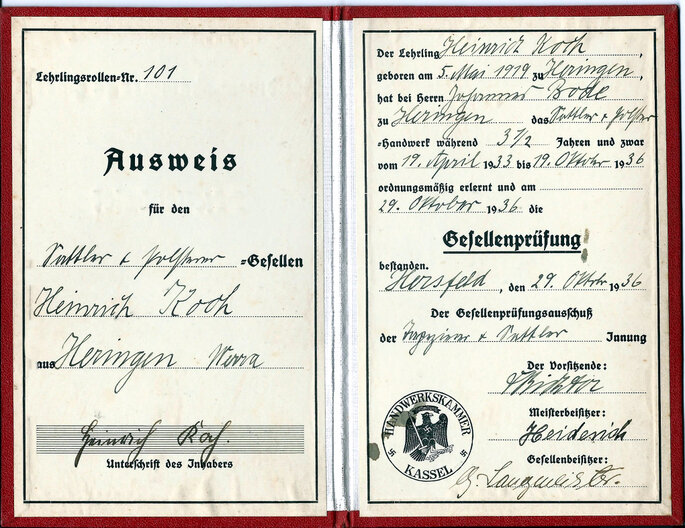 Lehrlingsrollen-Nr. 101
Ausweis
für den
Sattler & Polsterer =Gesellen
Heinrich Koch
aus Heringen Werra
Heinrich Koch.
Unterschrift des Inhabers
Der Lehrling Heinrich Koch,
geboren am 5. Mai 1919 zu Heringen,
hat bei Herrn Johannes Bode
zu Heringen das Sattler & Polster
=Handwerk während 3 1/2 Jahren und zwar
vom 19. April 1933 bis 19. Oktober 1936
ordnungsmäßig erlernt und am
29. Oktober 1936 die
Gesellenprüfung
bestanden.
Hersfeld, den 29. Oktobr 1936
Der Gesellenprüfungsausschuß
der Tapezierer & Sattler Innung
Der Vorsitzende:
Meisterbeisitzer:
Heiderich
Gesellenbeisitzer:
HANDWERKSKAMMER
KASSEL